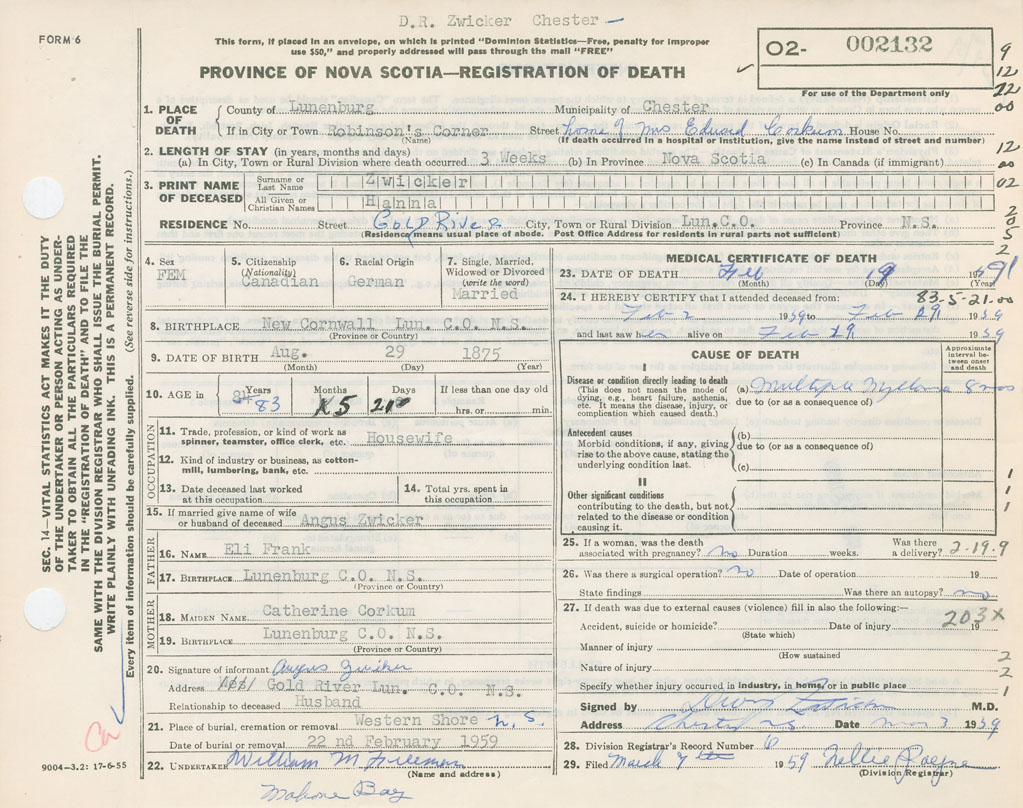 D.R. Zwicker Chester —
FORM 6
This form, if placed in an envelope, on which is printed "Dominion Statistics—Free, penalty for improper
use $50," and properly addressed will pass through the mail "FREE"
02- 002132
For use of the Department only
PROVINCE OF NOVA SCOTIA—REGISTRATION OF DEATH
9
12
22
00
12
00
02
2
0
5
2
1. PLACE OF DEATH County of Lunenburg Municipality of Chester
If in City or Town Robinson's Corner Street home of Mrs Edward Corkum House No.
(Name) (If death occurred in a hospital or institution, give name instead of street and number)
2. LENGTH OF STAY (in years, months and days)
(a) In City, Town or Rural Division where death occurred 3 Weeks (b) In Province Nova Scotia (c) In Canada (if immigrant)
3. PRINT NAME OF DECEASED Surname or Last Name Zwicker
All Given or Christian Names Hanna
RESIDENCE No. Street Gold River City, Town or Rural Division Lun.C.O. Province N.S.
(Residency means usual place of abode. Post Office Address for residents in rural parts not sufficient)
4. Sex FEM
5. Citizenship (Nationality) Canadian
6. Racial Origin German
7. Single, Married, Widowed or Divorced (write the word) Married
8. BIRTHPLACE New Cornwall Lun. C.O. N.S.
(Province or Country)
9. DATE OF BIRTH Aug. 29 1875
(Month) (Day) (Year)
10. AGE in Years 83 Months 5 Days 21 If less than one day old
hrs. or min.
OCCUPATION
11. Trade, profession, or kind of work as spinner, teamster, office clerk, etc. Housewife
12. Kind of industry or business, as cotton-mill, lumbering, bank, etc.
13. Date deceased last worked at this occupation
14. Total yrs. spent in this occupation
15. If married give name of wife or husband of deceased Angus Zwicker
FATHER
16. NAME Eli Frank
17. BIRTHPLACE Lunenburg C.O. N.S.
(Province or Country)
MOTHER
18. MAIDEN NAME Catherine Corkum
19. BIRTHPLACE Lunenburg C.O. N.S.
(Province or Country)
20. Signature of informant Angus Zwicker
Address Gold River Lun. C.O. N.S.
Relationship to deceased Husband
21. Place of burial, cremation or removal Western Shore N.S.
Date of burial or removal 22 nd February 1959
22. UNDERTAKER William M Freeman
(Name and address)
Mahone Bay
MEDICAL CERTIFICATE OF DEATH
23. DATE OF DEATH Feb 19 19
(Month) (Day) (Year)
83-5-21.00
24. I HEREBY CERTIFY that I attended deceased from:
Feb 2 1959 to Feb 19 1959
and last saw her alive on Feb 19 1959
CAUSE OF DEATH
Approximate interval between onset and death
I
Disease or condition directly leading to death
(This does not mean the mode of dying, e.g., heart failure, asthenia, etc. It means the disease, injury, or complication which caused death.)
(a) Multiple Myeloma 8 mos
due to (or as a consequence of)
Antecedent causes
Morbid conditions, if any, giving rise to the above cause, stating the underlying condition last.
(b)
due to (or as a consequence of)
(c)
II
Other significant conditions contributing to the death, but not related to the disease or condition causing it.
1
1
1
25. If a woman, was the death associated with pregnancy? no Duration weeks. Was there a delivery? 2-19.9
26. Was there a surgical operation? no Date of operation 19
State findings Was there an autopsy? no
27. If death was due to external causes (violence) fill in also the following:—
203X
Accident, suicide or homicide? Date of injury 19
(State which)
Manner of injury
(How sustained
Nature of injury
2
2
1
Specify whether injury occurred in industry, in home, or in public place
Signed by M.D.
Address Chester NS Date Mar 3 1959
28. Division Registrar's Record Number 6
29. Filed March 7th 1959 Nellie Payne
(Division Registrar)
SEC. 14—VITAL STATISTICS ACT MAKES IT THE DUTY
OF THE UNDERTAKER OR PERSON ACTING AS UNDER-
TAKER TO OBTAIN ALL THE PARTICULARS REQUIRED
IN THE "REGISTRATION OF DEATH" AND TO FILE THE
SAME WITH THE DIVISION REGISTRAR WHO SHALL ISSUE THE BURIAL PERMIT.
WRITE PLAINLY WITH UNFADING INK. THIS IS A PERMANENT RECORD.
Every item of information should be carefully supplied. (See reverse side for instructions.)
Ca
9004-3.2: 17-6-55